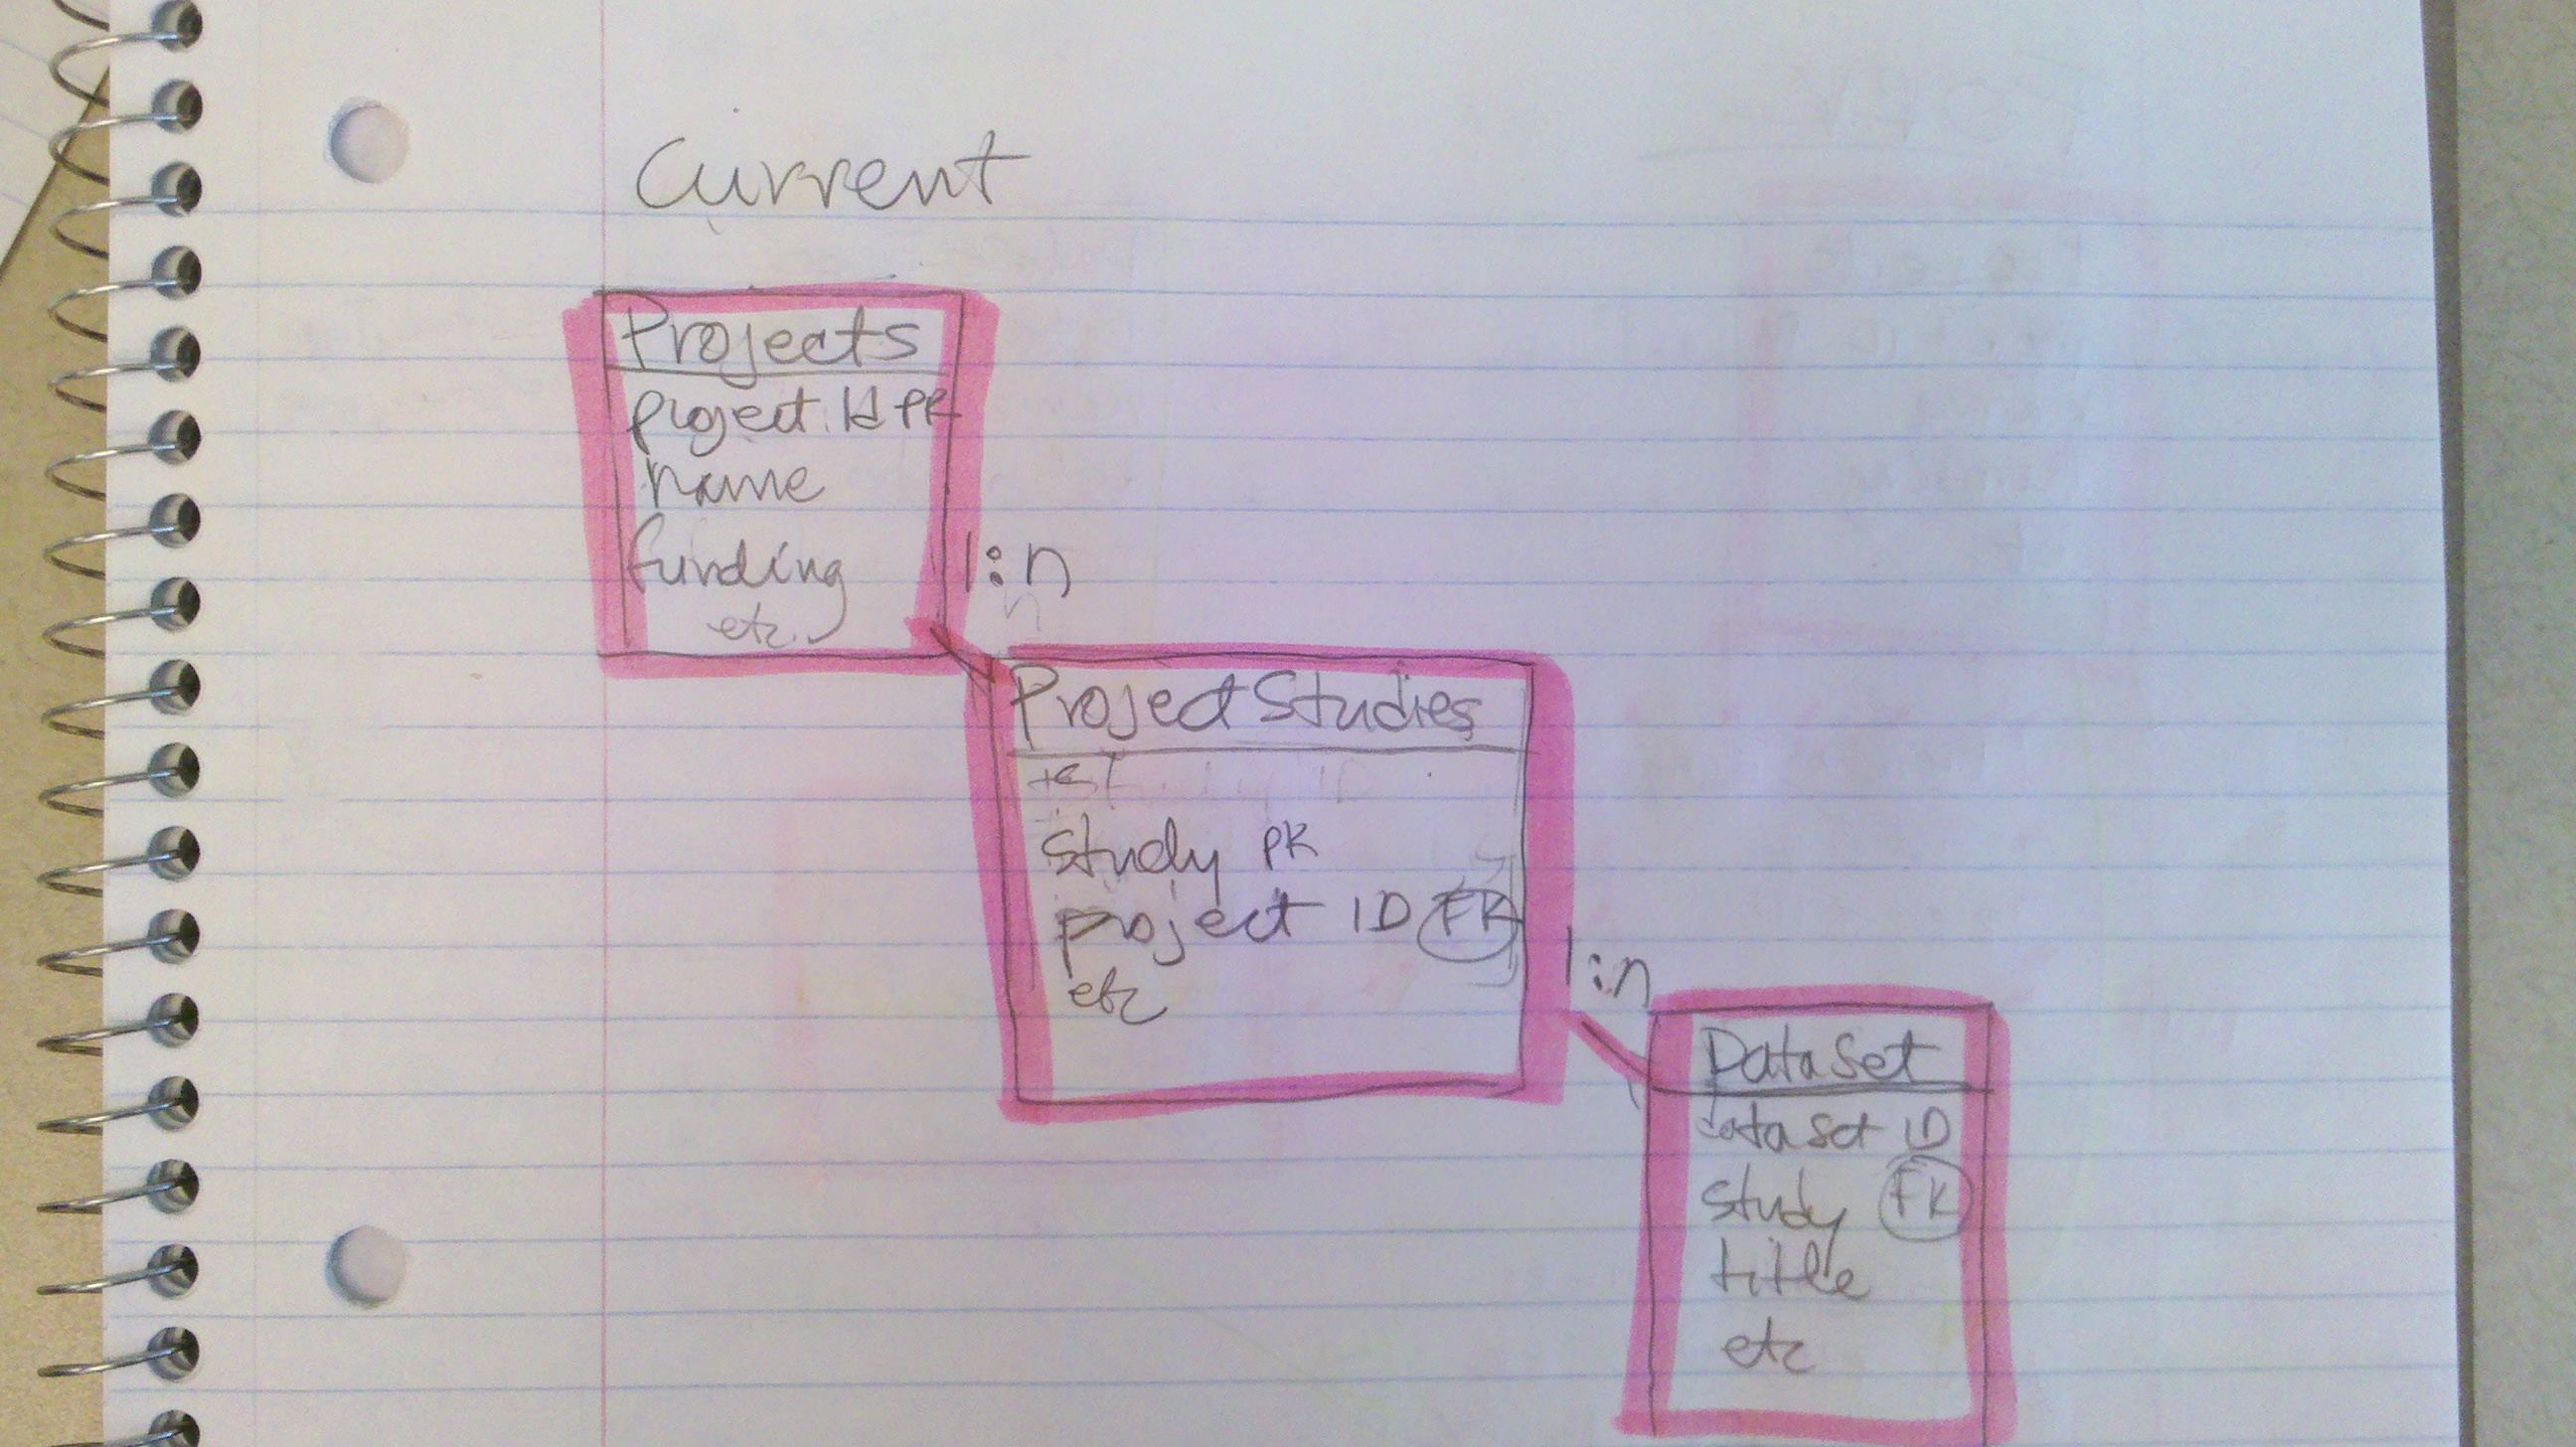 Current
Projects
Project Id PK
name
funding
etc.
1:n
Project Studies
Study PK
Project ID FK
etc
1:n
Data Set
dataset ID
Study FK
title
etc